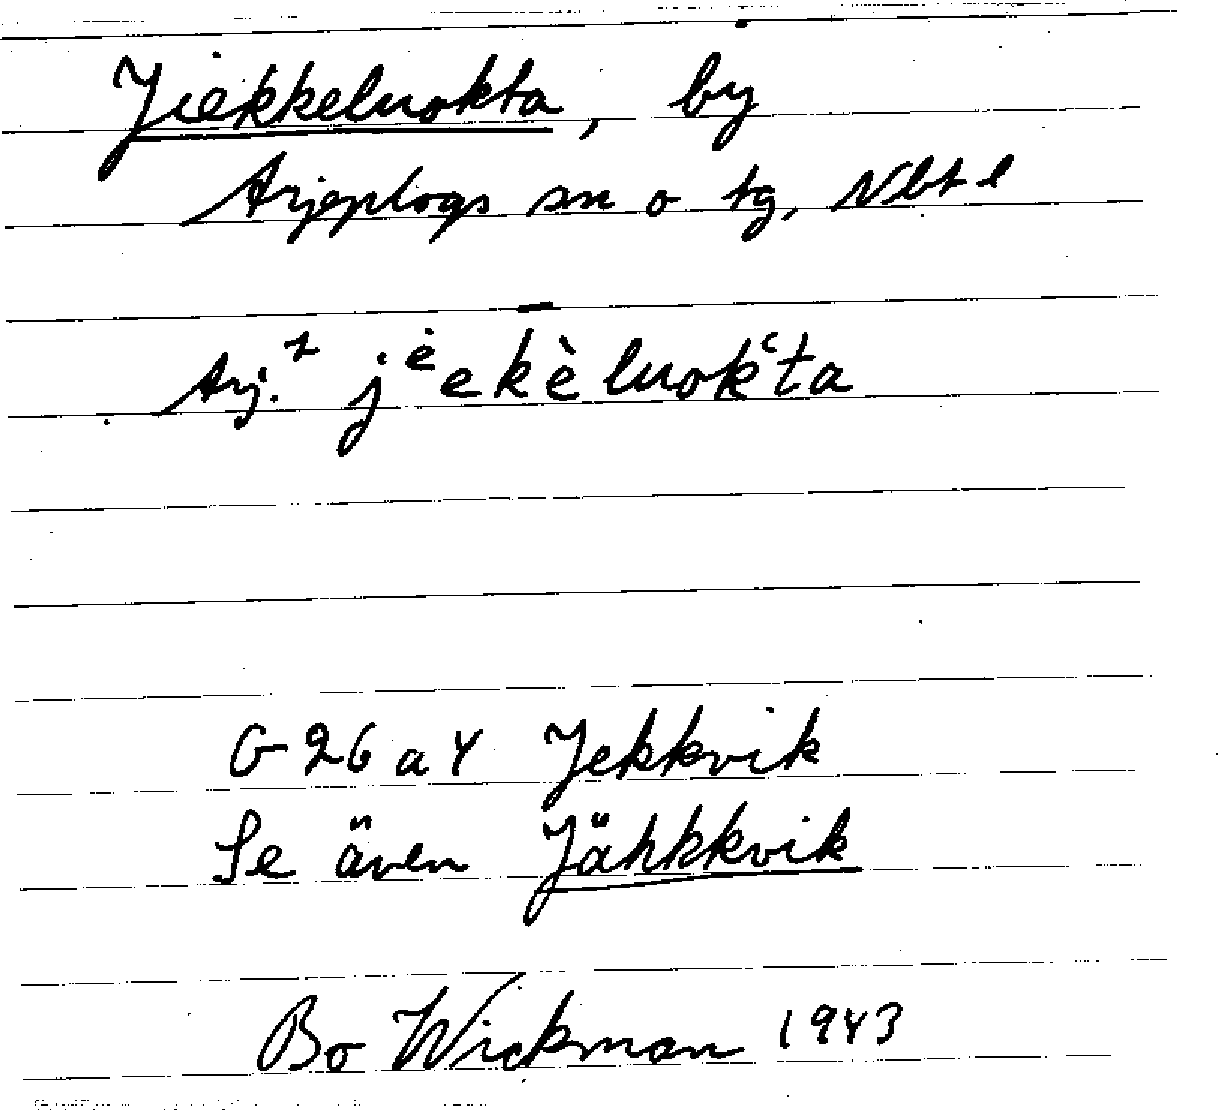 Jiekkeluokta, by
Arjeplogs sn o tg, Nbt l
Arj.¹ jėekèluok‘ta
G 26 a 4 Jekkvik
Se även Jähkkvik
Bo Wickman 1943